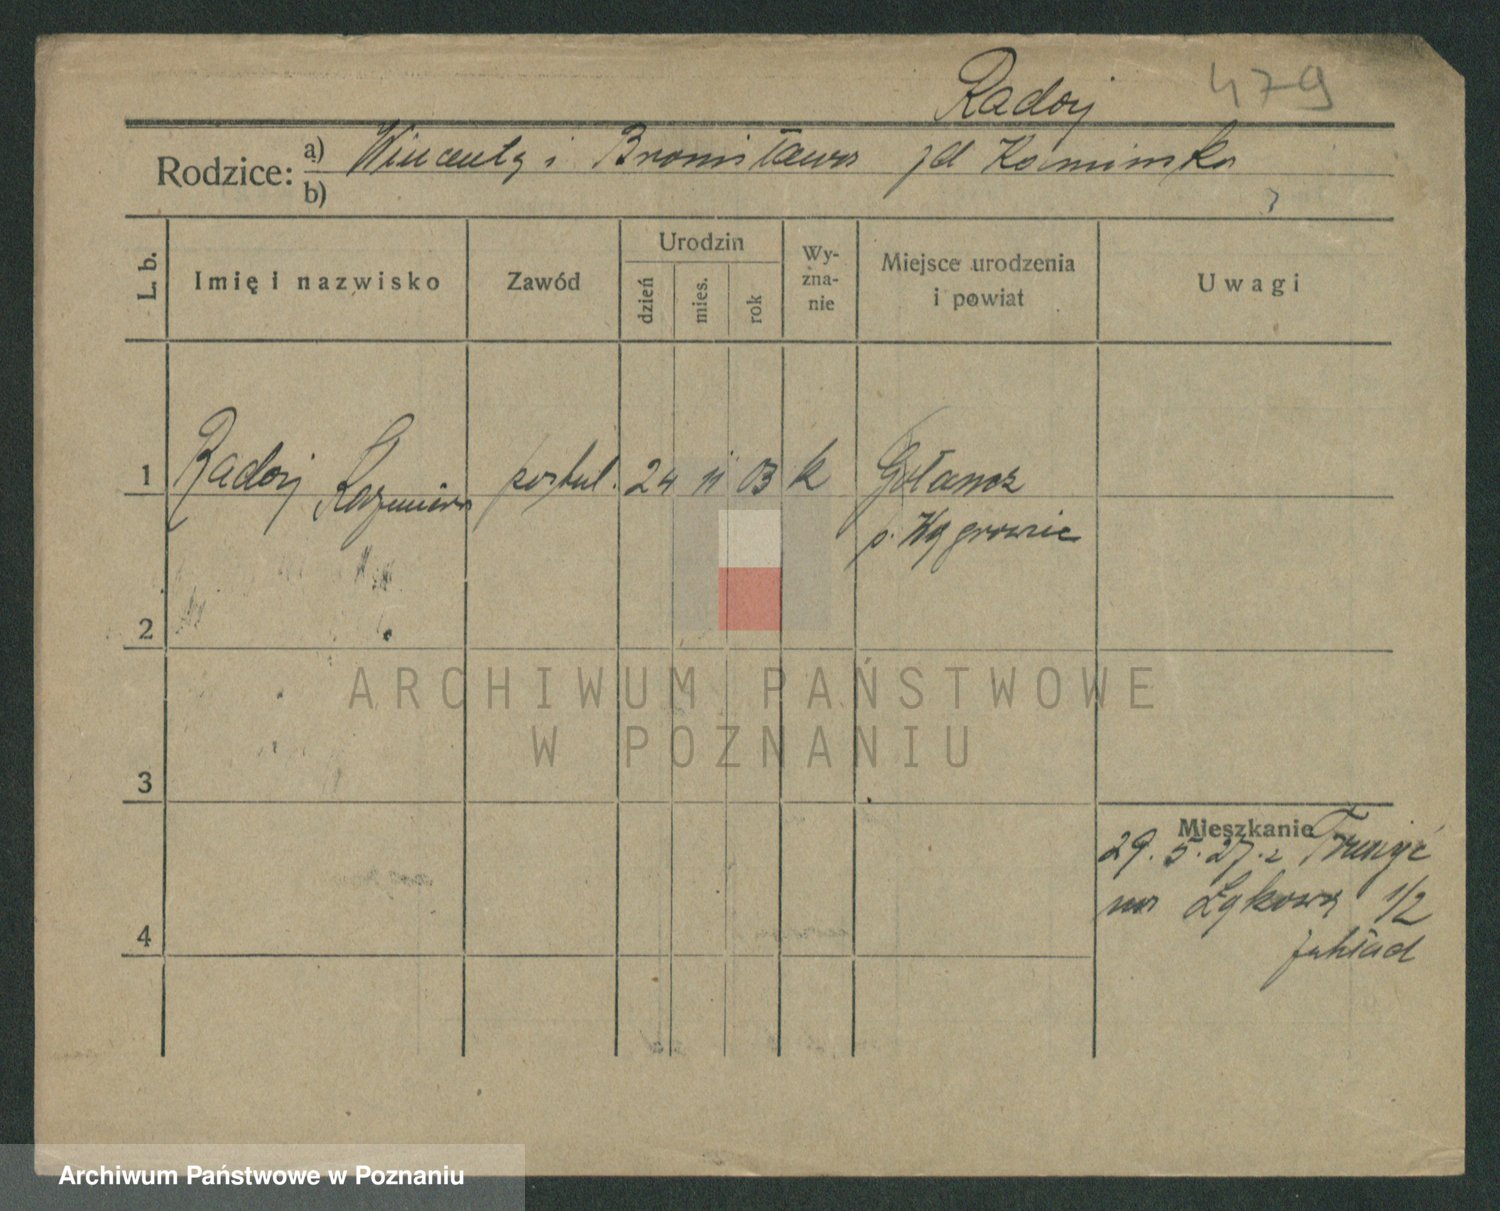 Radoj 479
Rodzice: a) Wincenty i Bronisława zd Kaminska
b)
L. b. Imię i nazwisko Zawód Urodzin dzień mies. rok Wyznanie Miejsce urodzenia i powiat Uwagi
1 Radoj Kazimiera postul. 24 11 03 k Gołancz
p. Wągrowiec
2
3
4
Mieszkanie
29. 5. 27. z
na Łąkową 1/2
zakład
ARCHIWUM PAŃSTWOWE
W POZNANIU
Archiwum Państwowe w Poznaniu